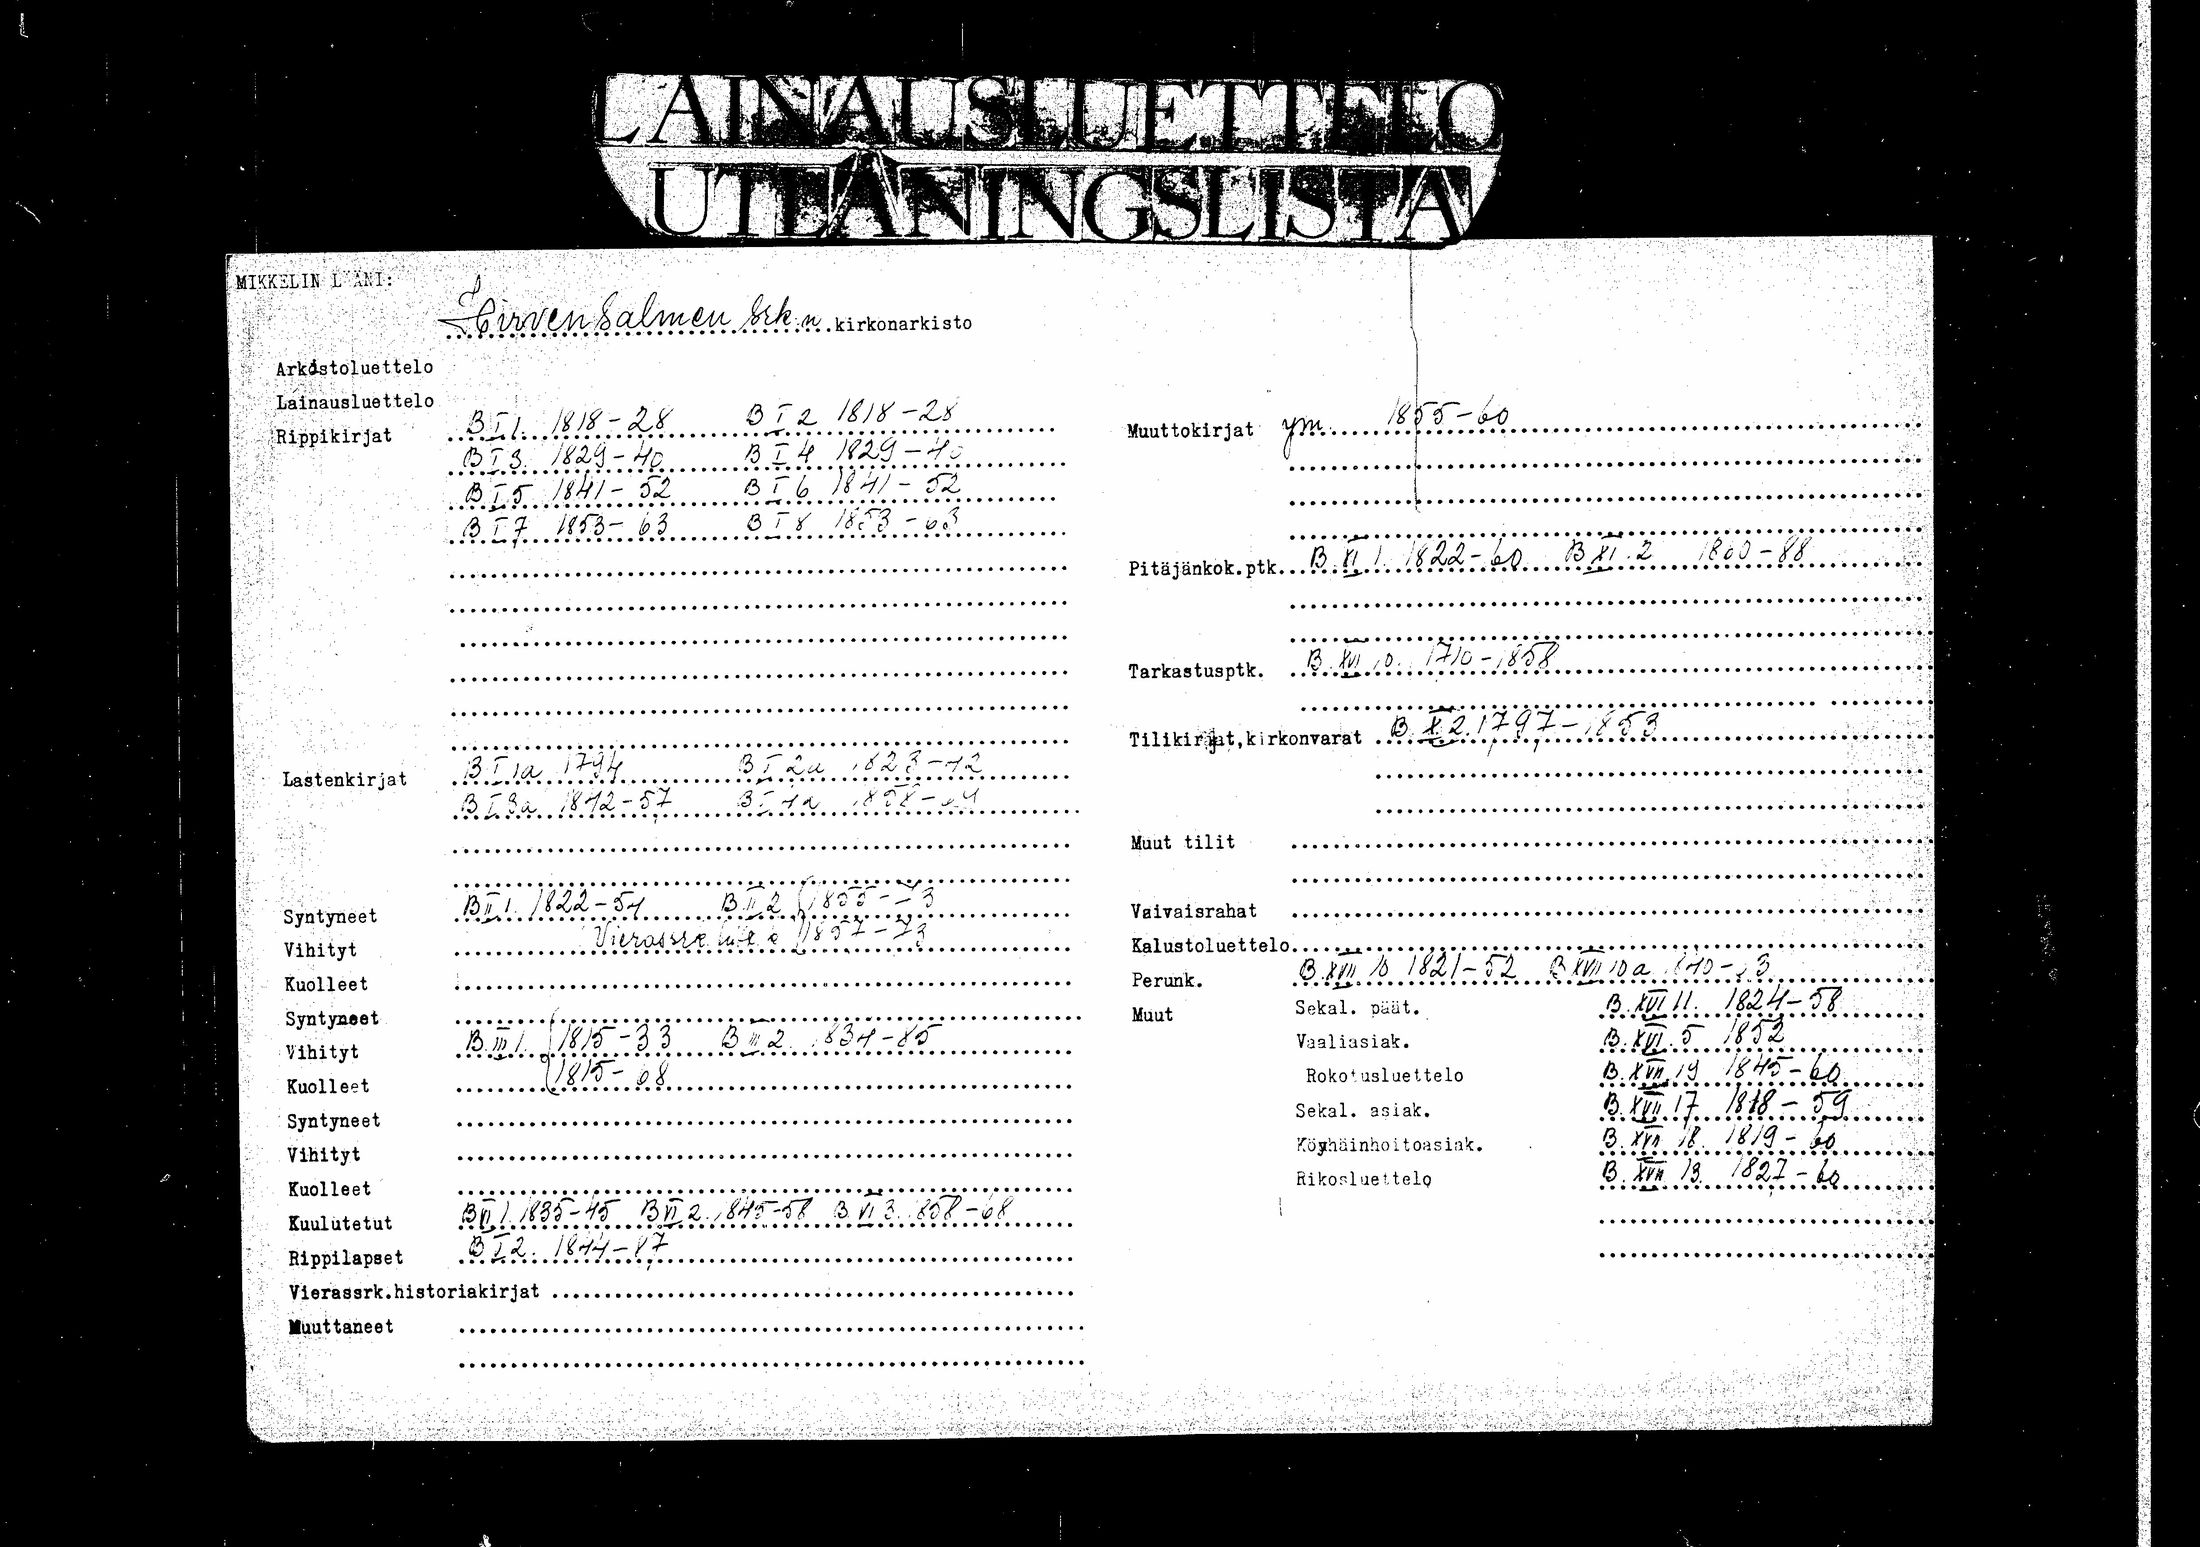 LAINAUSLUETTELO
UTLÅNINGSLISTA
MIKKELIN LÄÄNI:
Hirvensalmen srk:n kirkonarkisto
Arkistoluettelo
Lainausluettelo
Rippikirjat B I 1. 1818-28 B I 2 1818-28
B I 3. 1829-40 B I 4 1829-40
B I 5 1841-52 B I 6 1841-52
B I 7 1853-63 B I 8 1853-63
Lastenkirjat B I 1a 1794 B I 2a 1823-42
B I 3a 1842-57 B I 4a 1858-
Syntyneet B II 1. 1822-54 B II 2 1855-73
Vihityt Vierassrk 1857-73
Kuolleet
Syntyneet
Vihityt B III 1. 1815-33 B III 2. 1834-85
Kuolleet 1815-68
Syntyneet
Vihityt
Kuolleet
Kuulutetut B VI 1. 1835-45 B VI 2. 1845-58 B VI 3. 1858-68
Rippilapset B I 2. 1844-87
Vierassrk.historiakirjat
Muuttaneet
Muuttokirjat ym. 1855-60
Pitäjänkok.ptk. B XI 1. 1822-60 B XI 2 1860-88
Tarkastusptk. B XVI 10. 1710-1858
Tilikirjat,kirkonvarat B X 2. 1797-1853
Muut tilit
Vaivaisrahat
Kalustoluettelo
Perunk. B XVII 10 1821-52 B XVII 10a
Muut Sekal. päät. B XVI 11. 1824-58
Vaaliasiak. B XVI 5 1852
Rokotusluettelo B XVII 19 1845-60
Sekal. asiak. B XVII 17 1818-59
Köyhäinhoitoasiak. B XVII 18. 1819-60
Rikosluettelo B XVII 13. 1827-60